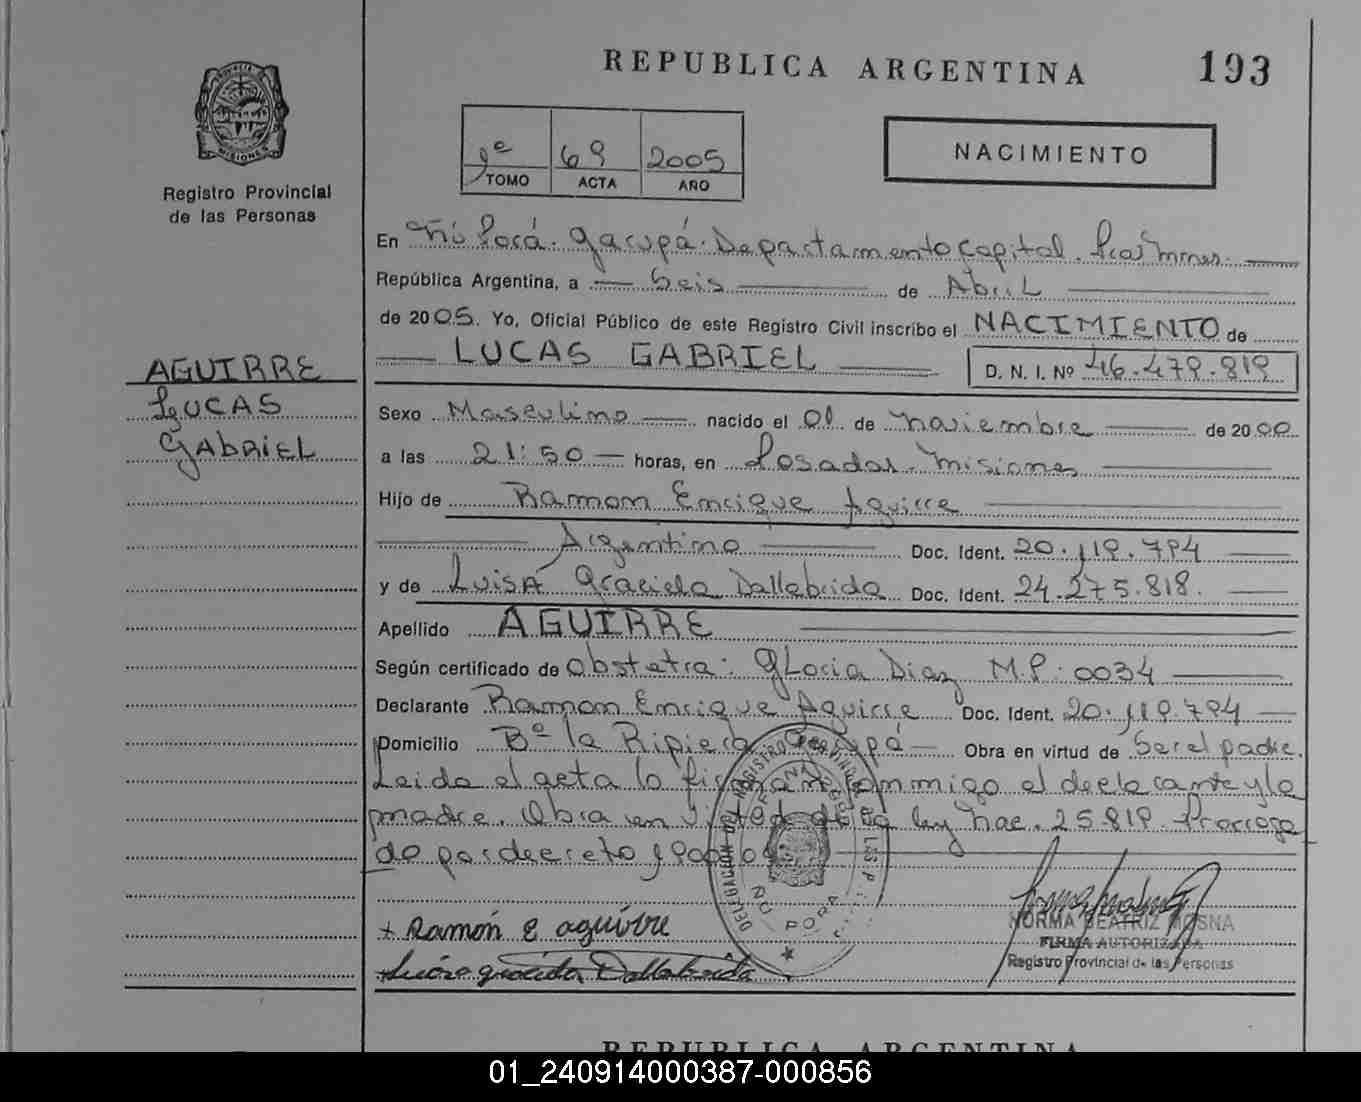 REPUBLICA ARGENTINA 193
PROVINCIA DE MISIONES
Registro Provincial
de las Personas
69 2005
TOMO ACTA AÑO
NACIMIENTO
En Ñú Porá. Garupá. Departamento Capital. Pcia. Mnes.
República Argentina, a seis de Abril
de 2005. Yo, Oficial Público de este Registro Civil inscribo el NACIMIENTO de
LUCAS GABRIEL D. N. I. Nº 46.479.819
AGUIRRE
LUCAS
GABRIEL
Sexo Masculino nacido el 01 de noviembre de 2000
a las 21:50 horas, en Posadas. Misiones
Hijo de Ramon Enrique Aguirre
Argentino Doc. Ident. 20.119.794
y de LUISA Graciela Dallabrida Doc. Ident. 24.275.818.
Apellido AGUIRRE
Según certificado de obstetra: Gloria Diaz M.P: 0034
Declarante Ramon Enrique Aguirre Doc. Ident. 20.119.794
Domicilio Bº la Ripiera Garupá Obra en virtud de ser el padre.
Leida el acta la firman conmigo el declarante y la
madre. Obra en virtud de la ley Nac. 25819 Prorroga
do por decreto
DELEGACION DEL REGISTRO PROVINCIAL DE LAS P.
ÑU PORA
+ Ramón E aguirre
Luisa graciela Dallabrida
NORMA BEATRIZ MOSNA
FIRMA AUTORIZADA
Registro Provincial de las Personas
REPUBLICA ARGENTINA
01_240914000387-000856